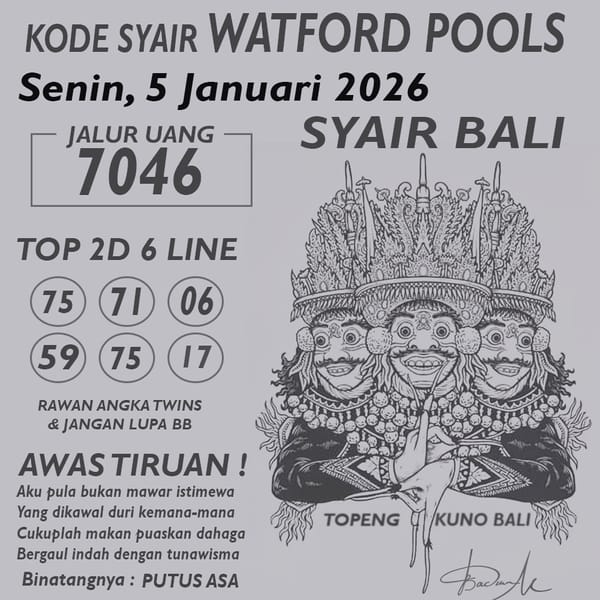 KODE SYAIR WATFORD POOLS
Senin, 5 Januari 2026
JALUR UANG
7046
SYAIR BALI
TOP 2D 6 LINE
75 71 06
59 75 17
RAWAN ANGKA TWINS
& JANGAN LUPA BB
AWAS TIRUAN !
Aku pula bukan mawar istimewa
Yang dikawal duri kemana-mana
Cukuplah makan puaskan dahaga
Bergaul indah dengan tunawisma
Binatangnya : PUTUS ASA
TOPENG KUNO BALI